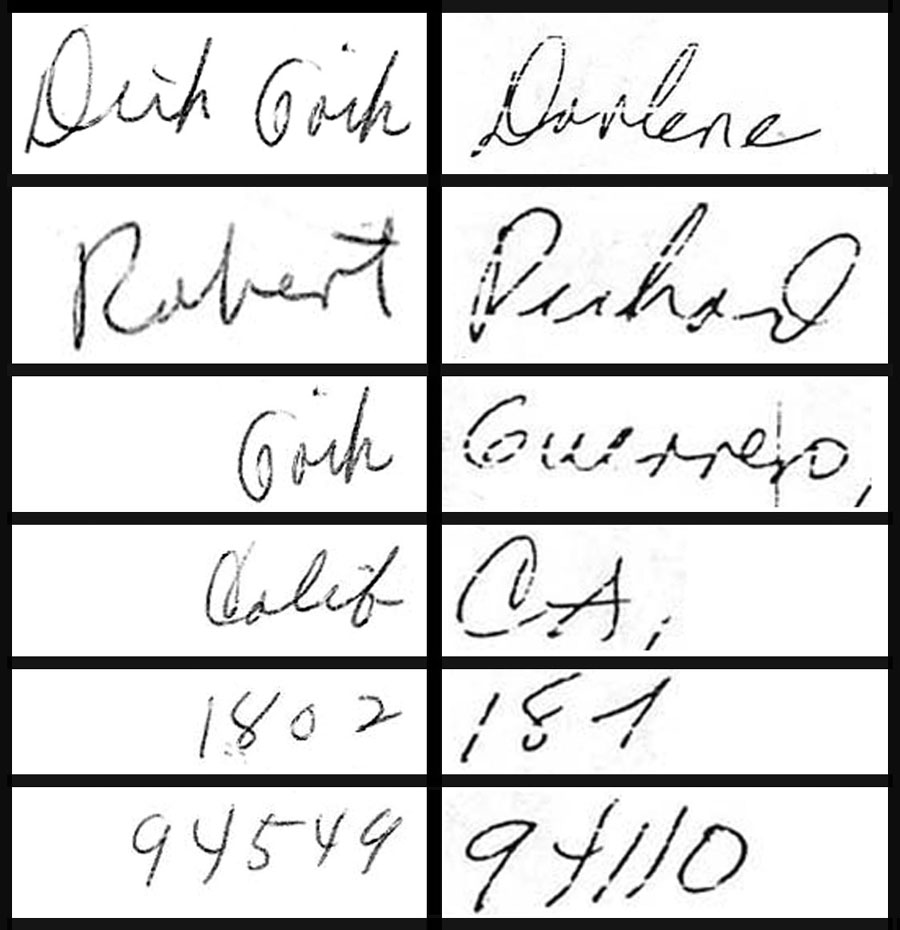 Dick Göck Darlene
Robert Richard
Göck Guerrero,
Calif CA,
1802 181
94549 94110